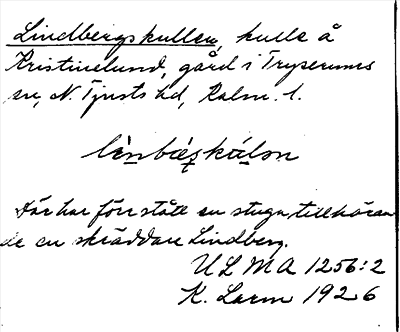 Lindbergskullen, kulle å
Kristinelund, gård i Tryserums
sn, N. Tjusts hd, Kalm. l.
lìnbæskúlon
Där har förr stått en stuga, tillhöran
de en skräddare Lindberg.
ULMA 1256:2
K. Larm 1926